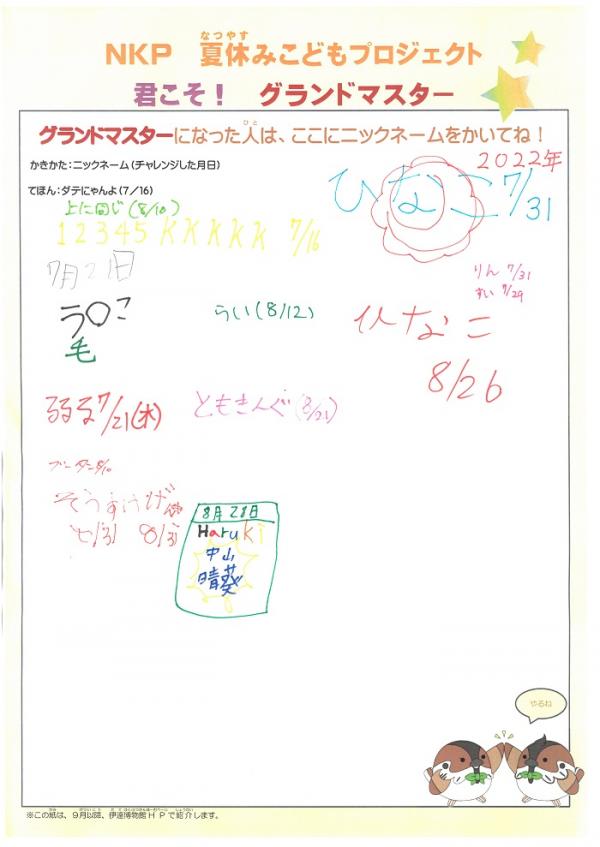 NKP 夏休みこどもプロジェクト
君こそ！ グランドマスター
グランドマスターになった人は、ここにニックネームをかいてね！
かきかた：ニックネーム（チャレンジした月日）
てほん：ダテにゃんよ（7／16）
2022年
ひなこ 7/31
上に同じ(8/10)
12345KKKKK 7/16
7月21日
りん 7/31
すい 7/29
う〇こ
毛
らい(8/12)
ひなこ
8/26
るる 7/21(木)
ともきんぐ(8/21)
8/31
8月28日
Haruki
中山
晴葵
やるね
※この紙は、9月以降、伊達博物館HPで紹介します。